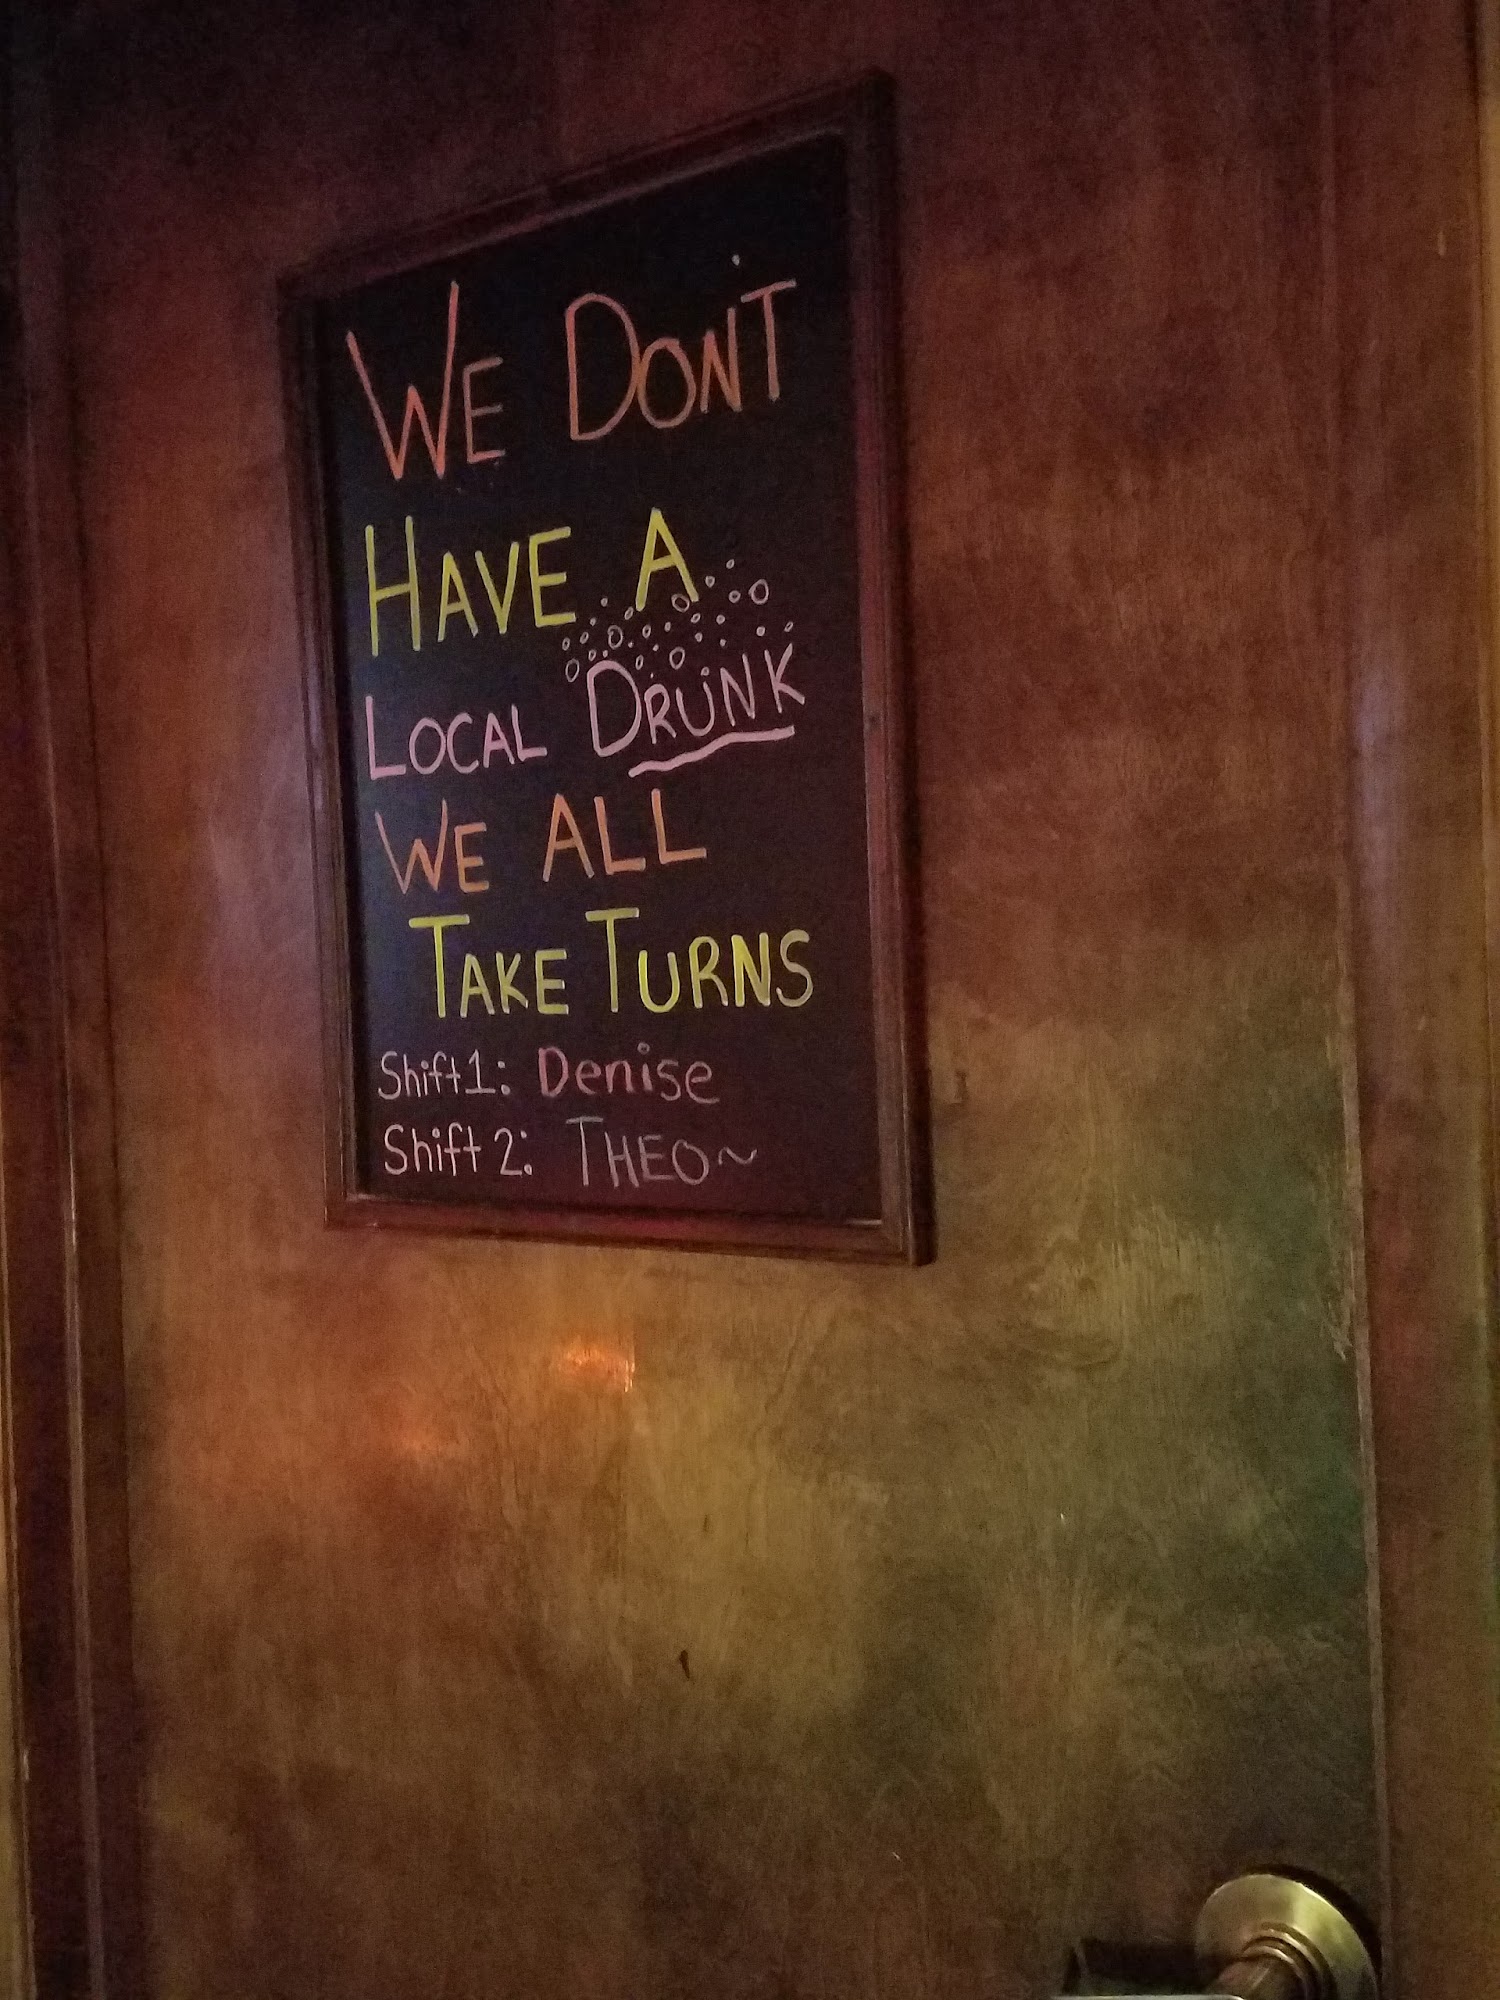 WE DON'T
HAVE A
LOCAL DRUNK
WE ALL
TAKE TURNS
Shift 1: Denise
Shift 2: THEO~